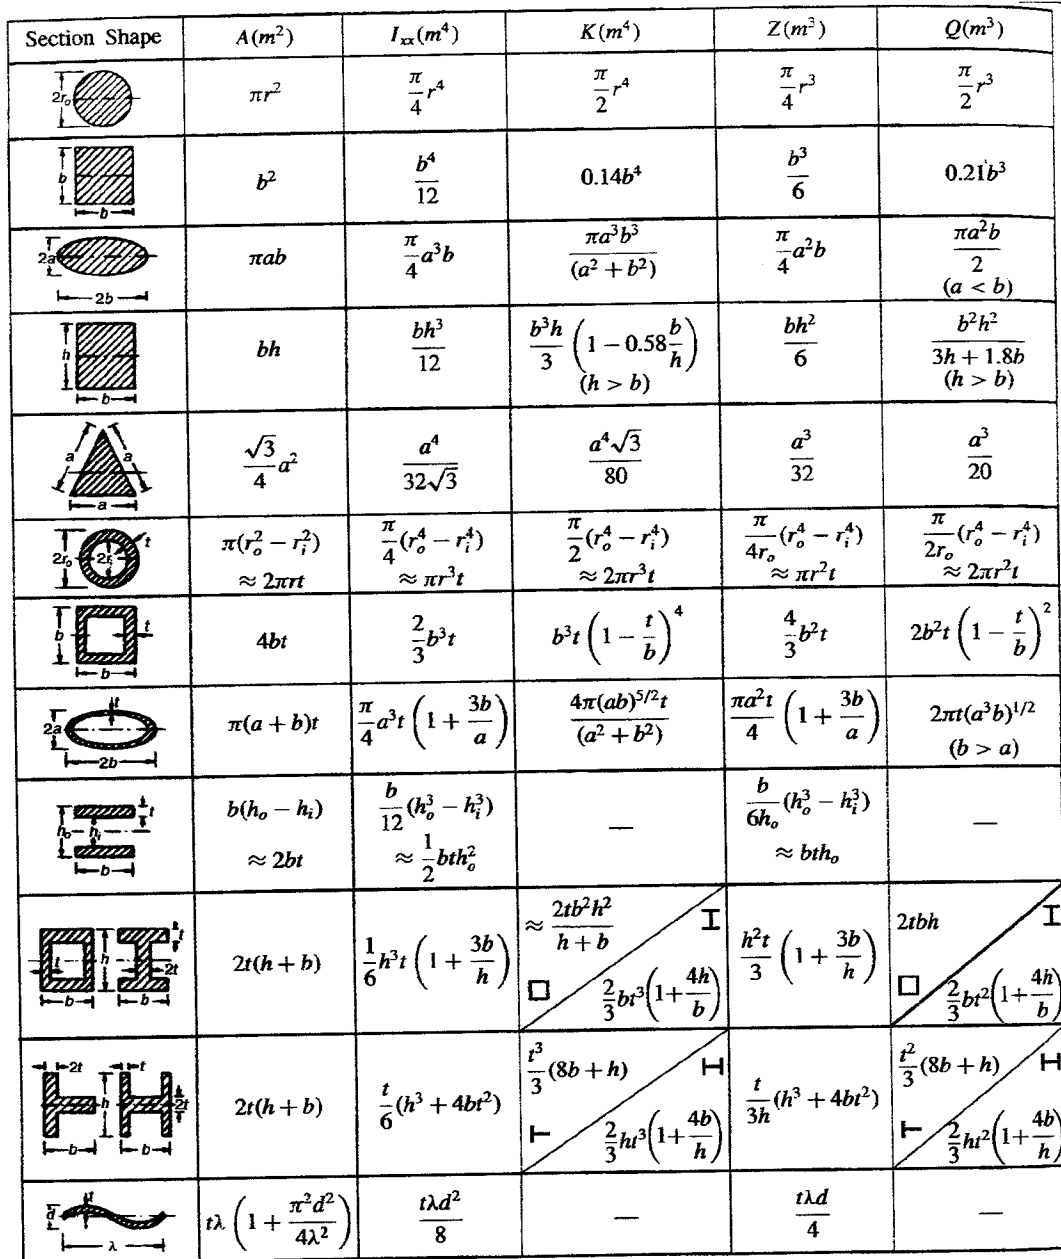 Section Shape A(m²) I_xx(m⁴) K(m⁴) Z(m³) Q(m³)
2r_o πr² π/4 r⁴ π/2 r⁴ π/4 r³ π/2 r³
b b b² b⁴/12 0.14b⁴ b³/6 0.21b³
2a 2b πab π/4 a³b πa³b³/(a² + b²) π/4 a²b πa²b/2 (a < b)
h b bh bh³/12 b³h/3 (1 − 0.58 b/h) (h > b) bh²/6 b²h²/(3h + 1.8b) (h > b)
a a a √3/4 a² a⁴/32√3 a⁴√3/80 a³/32 a³/20
2r_o 2r_i t π(r_o² − r_i²) π/4 (r_o⁴ − r_i⁴) π/2 (r_o⁴ − r_i⁴) π/4r_o (r_o⁴ − r_i⁴) π/2r_o (r_o⁴ − r_i⁴)
≈ 2πrt ≈ πr³t ≈ 2πr³t ≈ πr²t ≈ 2πr²t
b t b 4bt 2/3 b³t b³t (1 − t/b)⁴ 4/3 b²t 2b²t (1 − t/b)²
2a t 2b π(a + b)t π/4 a³t (1 + 3b/a) 4π(ab)^5/2 t/(a² + b²) πa²t/4 (1 + 3b/a) 2πt(a³b)^1/2 (b > a)
h_o h_i t b b(h_o − h_i) b/12 (h_o³ − h_i³) — b/6h_o (h_o³ − h_i³) —
≈ 2bt ≈ 1/2 bth_o² ≈ bth_o
t b h t 2t b 2t(h + b) 1/6 h³t (1 + 3b/h) ≈ 2tb²h²/(h + b) 2/3 bt³(1 + 4h/b) h²t/3 (1 + 3b/h) 2tbh 2/3 bt²(1 + 4h/b)
2t b t h 2t b 2t(h + b) t/6 (h³ + 4bt²) t³/3 (8b + h) 2/3 ht³(1 + 4b/h) t/3h (h³ + 4bt²) t²/3 (8b + h) 2/3 ht²(1 + 4b/h)
d t λ tλ (1 + π²d²/4λ²) tλd²/8 — tλd/4 —